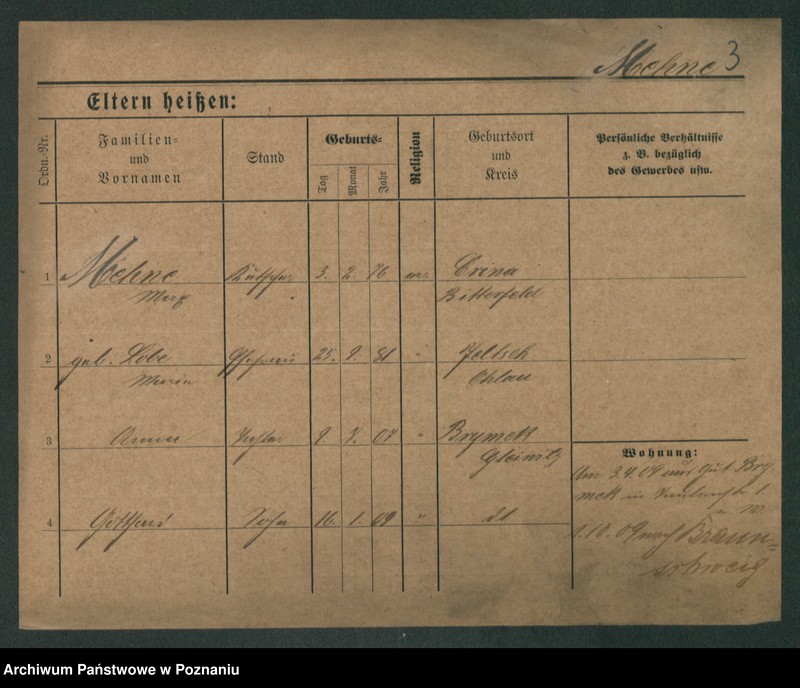 Mehne 3
Eltern heißen:
Ordn.-Nr.
Familien-
und
Vornamen
Stand
Geburts-
Tag
Monat
Jahr
Religion
Geburtsort
und
Kreis
Persönliche Verhältnisse
z. B. bezüglich
des Gewerbes usw.
1 Mehne Kutscher 3. 2. 76
Max Bitterfeld
2 geb. Lobe Ehefrau 25. 9. 81 " Jeltsch
Maria Ohlau
3 Anna Tochter 9 7. 07 "
Gleiwitz
4 Gotthard Sohn 16. 1. 09 " dt
Wohnung:
Am 3.4.09 aus Gut
in
1.10.09 nach Braun=
schweig
Archiwum Państwowe w Poznaniu